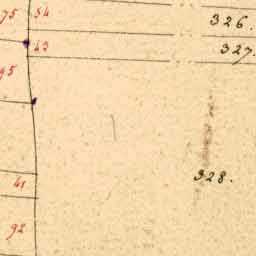 75 54 326.
43 327.
95
41 328.
92